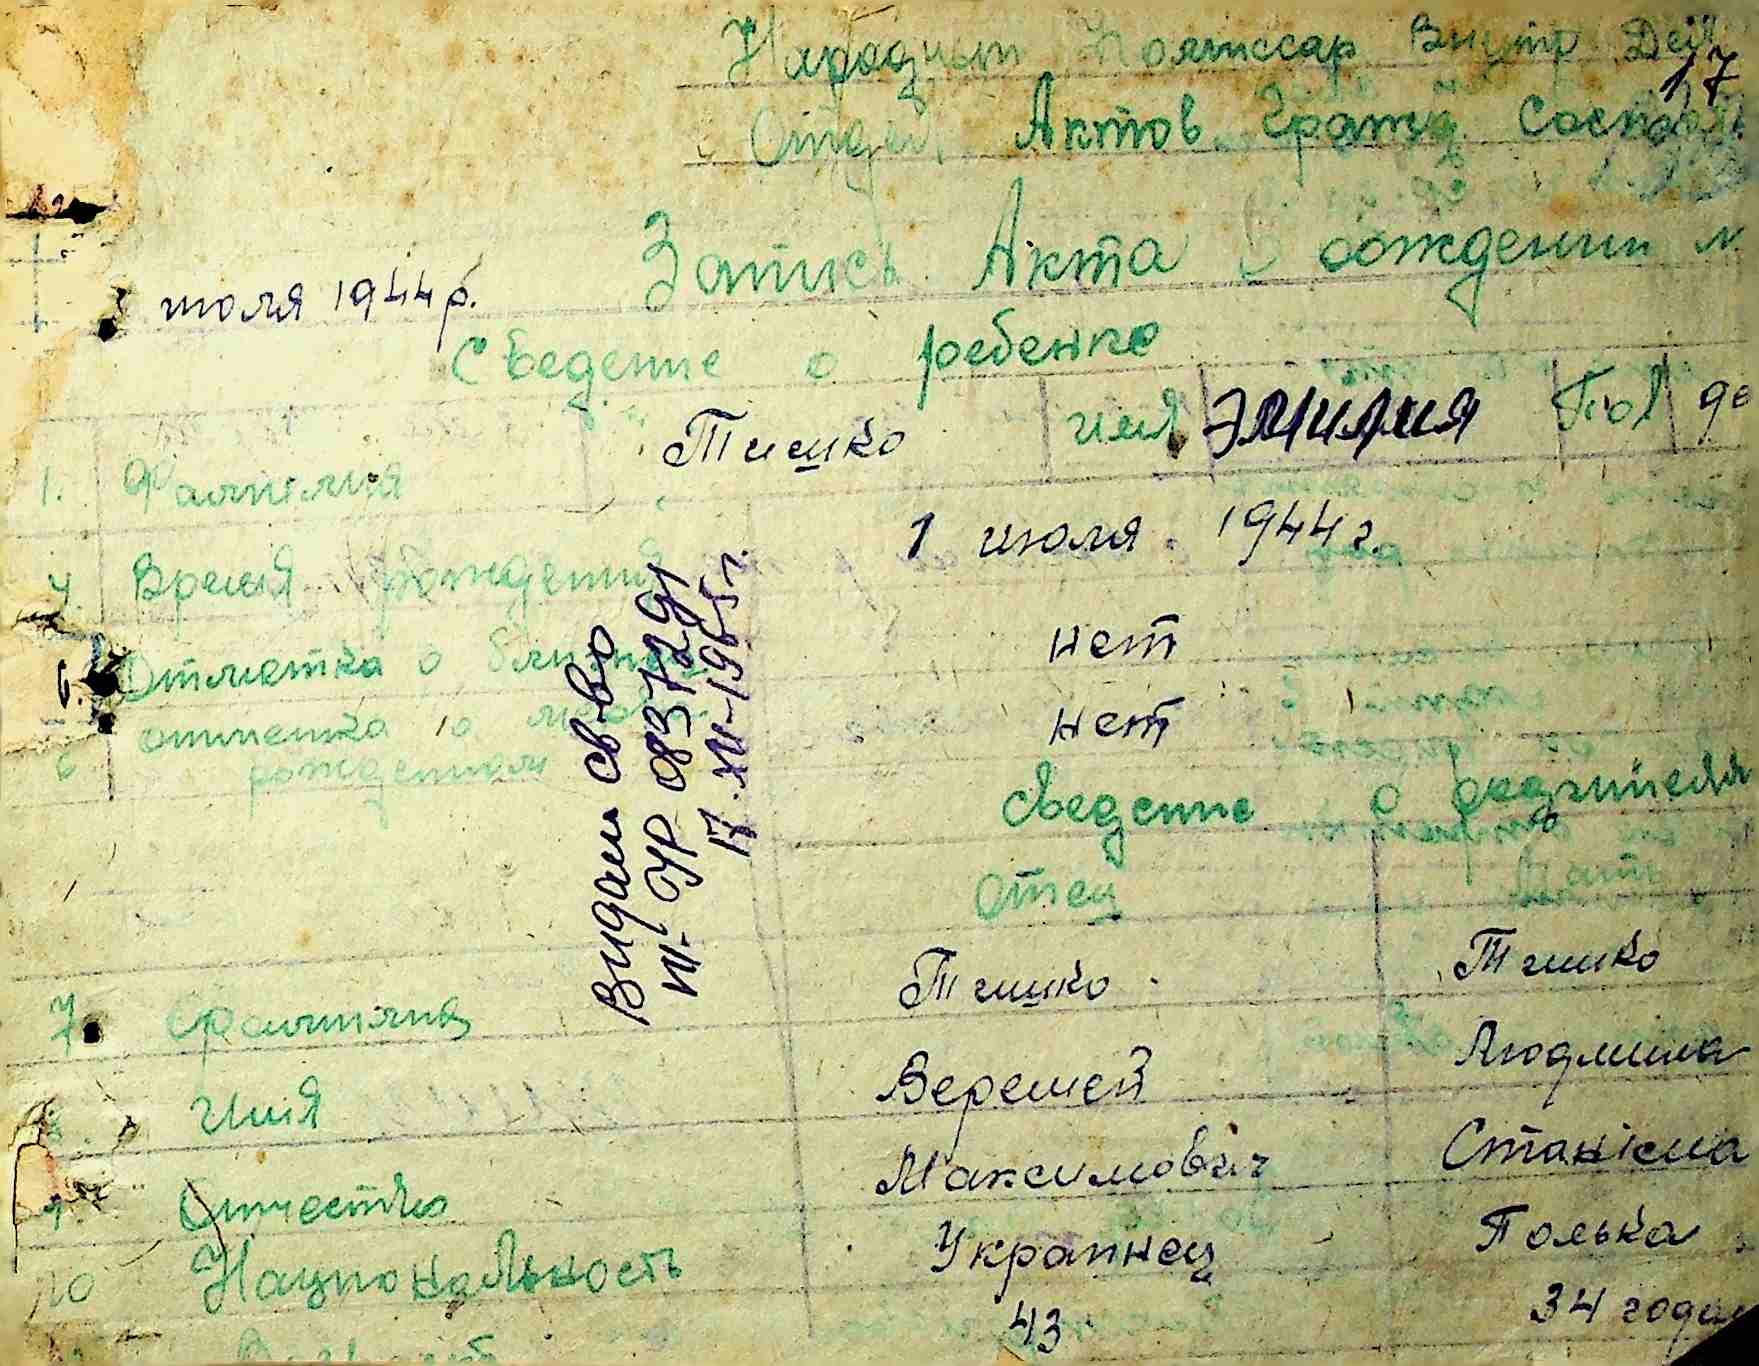 Народный Комиссар Внутр Дел
17
Отдел Актов Гражд Состоян
Запись Акта о рождении №
июля 1944 р.
Сведение о ребенке
1. Фамилия Тишко имя Эмилия Пол
4. Время рождения 1 июля 1944 г
Отметка о нет
отметка о нет
рождении
Видан св-во
083729
17.XI-1965г.
сведение о родителя
Отец Мать
7. Фамилия Тишко Тишко
8. Имя Веремей Людмила
9. Отчество Максимович
10 Национальность Украинец Полька
43 34 года